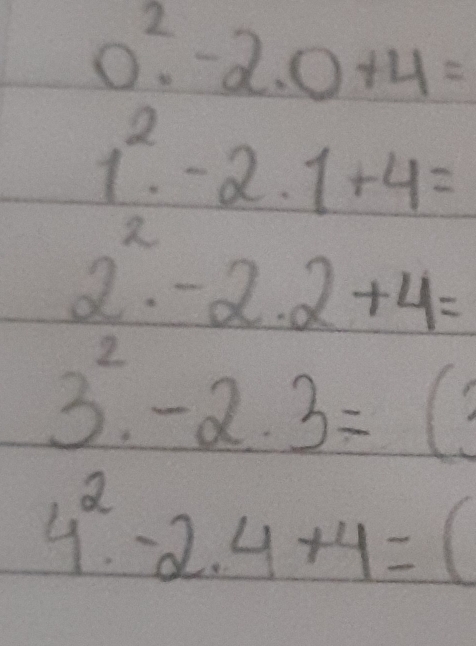 0². -2.0+4=
1². -2.1+4=
2². -2.2+4=
3². -2.3= (3
4². -2.4+4= (